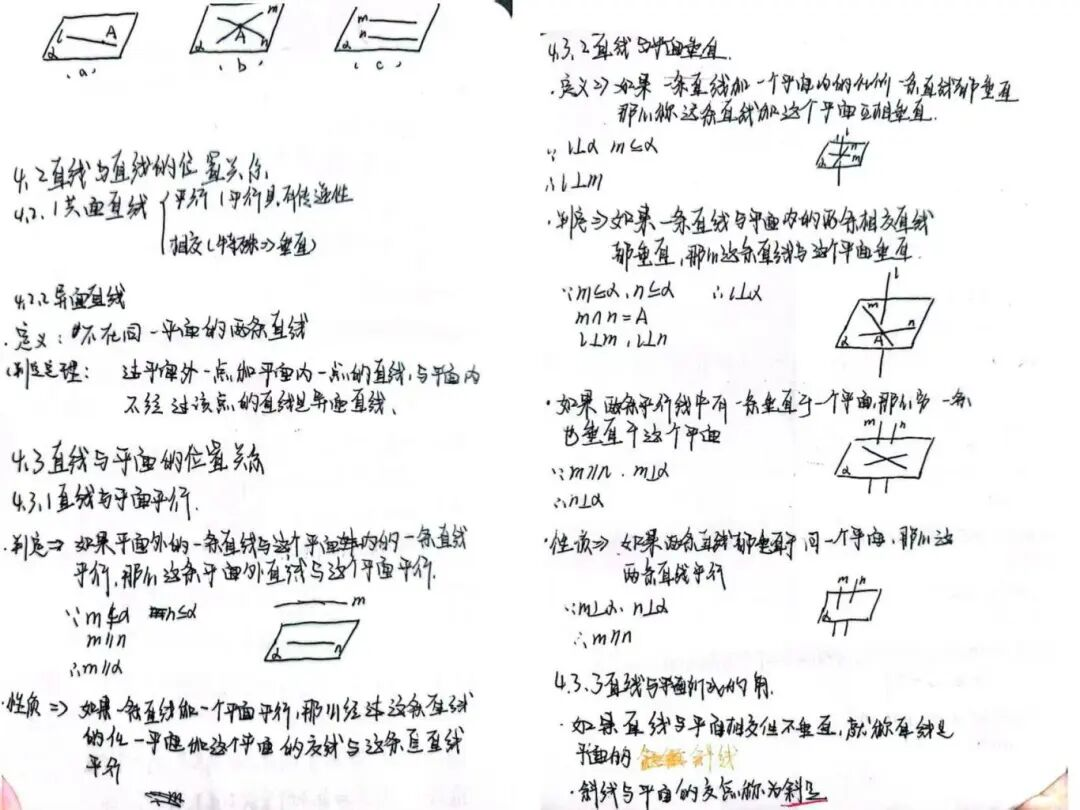 l A α
m A n α
m n α
(a) (b) (c)
4.2直线与直线的位置关系
4.2.1共面直线 { 平行(平行具有传递性
相交(特殊⇒垂直)
4.2.2异面直线
·定义:不在同一平面的两条直线
判定定理: 过平面外一点和平面内一点的直线,与平面内
不经过该点的直线是异面直线、
4.3直线与平面的位置关系
4.3.1直线与平面平行.
·判定⇒ 如果平面外的一条直线与这个平面内的一条直线
平行,那么这条平面外直线与这个平面平行.
∵m⊈α n⊆α
m∥n
∴m∥α
m
α n
·性质⇒ 如果一条直线和一个平面平行,那么经过这条直线
的任一平面和这个平面的交线与这条直直线
平行
4.3.2直线与平面垂直.
·定义⇒如果一条直线和一个平面内的任何一条直线都垂直
那么称这条直线和这个平面互相垂直.
∵l⊥α m⊆α
∴l⊥m
l n m α
·判定⇒如果一条直线与平面内的两条相交直线
都垂直,那么这条直线与这个平面垂直.
∵m⊆α,n⊆α ∴l⊥α
m∩n=A
l⊥m,l⊥n
l m n A α
·如果两条平行线中有一条垂直于一个平面,那么另一条
也垂直于这个平面
∵m∥n.m⊥α
∴n⊥α
m n α
·性质⇒ 如果两条直线都垂直于同一个平面,那么这
两条直线平行
∵m⊥α.n⊥α
∴m∥n
m n α
4.3.3直线与平面所成的角.
·如果直线与平面相交但不垂直,就称直线是
平面的 斜线
·斜线与平面的交点称为斜足